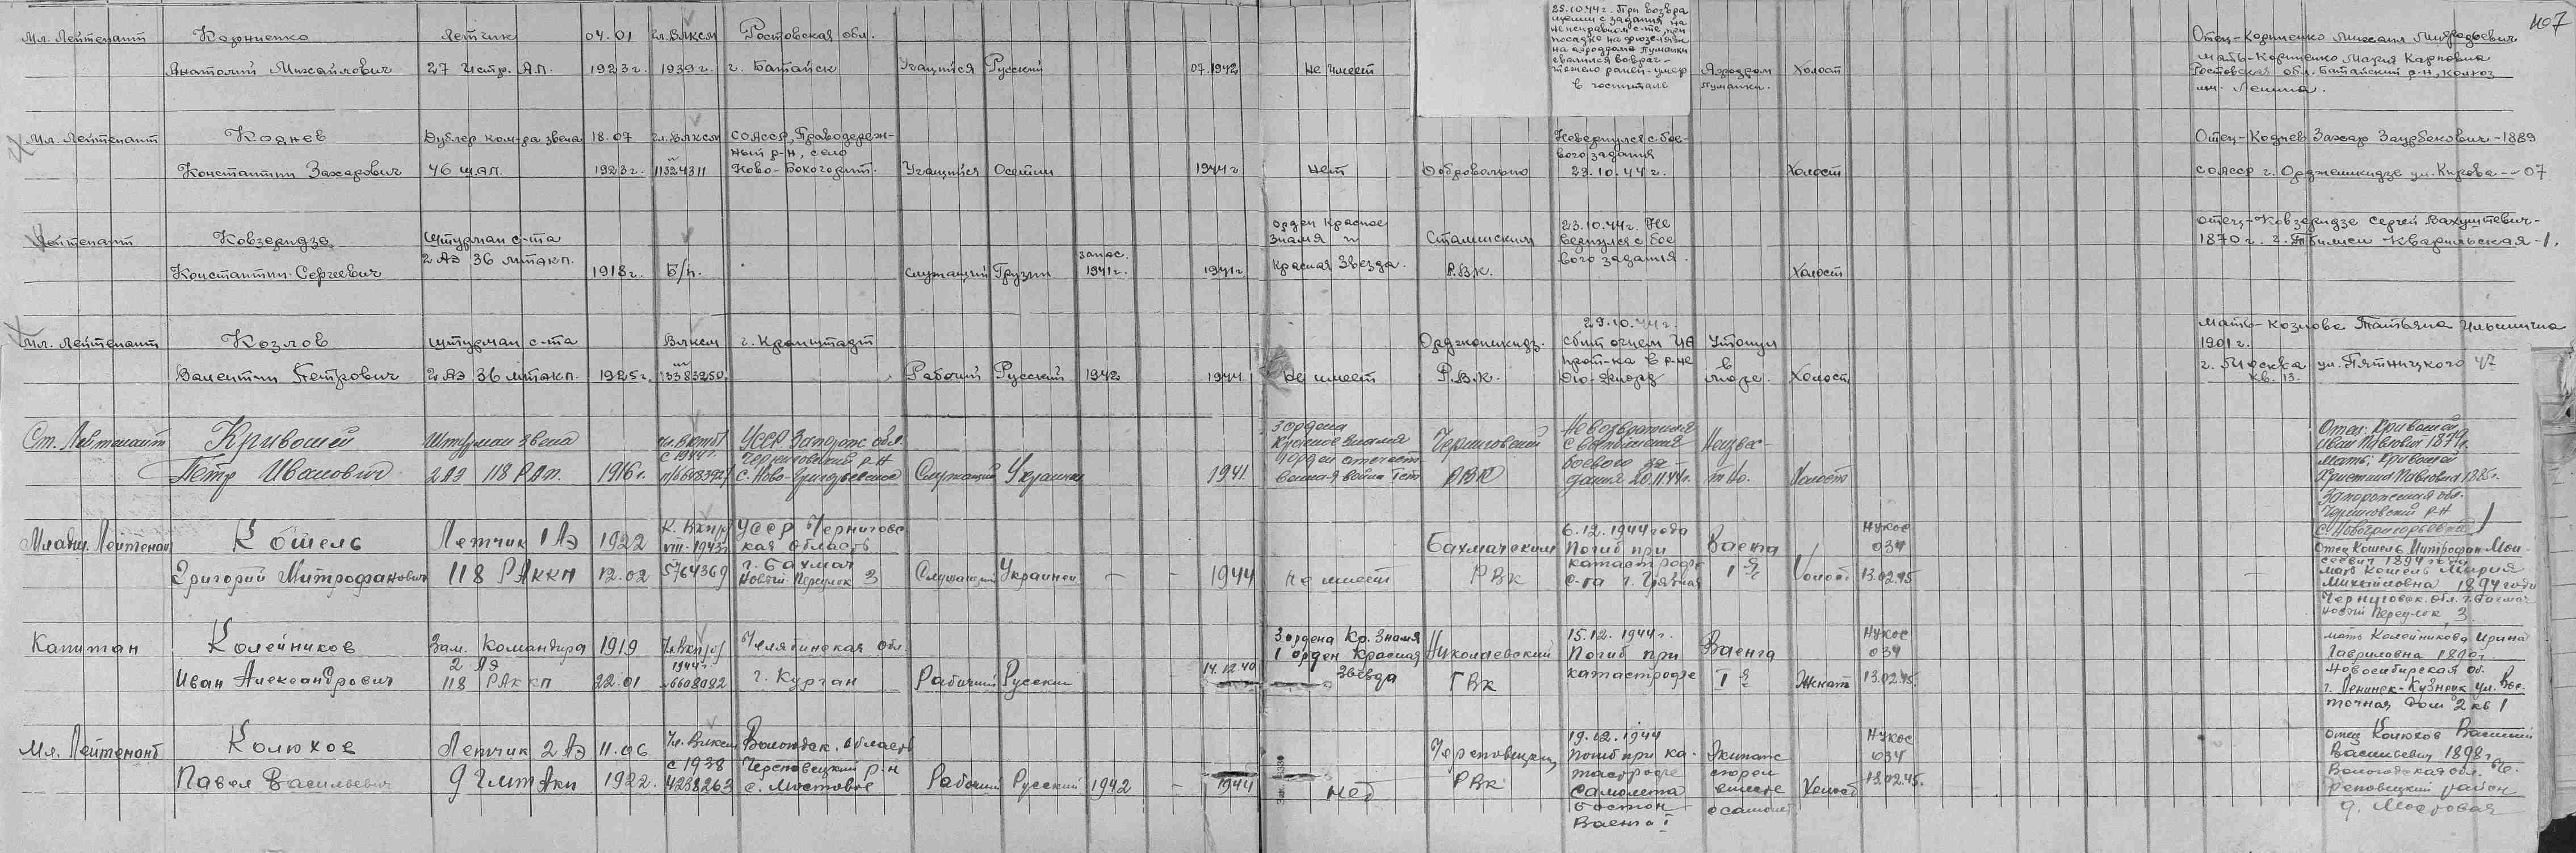 407
Мл. Лейтенант Корниенко летчик 04.01 чл. ВЛКСМ Ростовская обл.
Анатолий Михайлович 27 Истр. А.П. 1923 г. 1939 г. г. Батайск Учащийся Русский 07.1942 Не имеет
25.10.44 г. При возвра
щении с задания на
неисправном с-те, при
посадке на фюзеляж
на аэродроме Пуманки
свалился в овраг-
тяжело ранен-умер
в госпитале
Аэродром
Пуманки.
Холост
Отец-Корниенко Михаил Мифодьевич
мать-Корниенко Мария Карповна
Ростовская обл. Батайский р-н, колхоз
им. Ленина.
Мл. Лейтенант Коднев Дублер ком-ра звена 18.07 чл. ВЛКСМ СОАССР, Праводереж-
ный р-н, село
Константин Захарович 46 ШАП. 1923 г. 11324311 Ново- Учащийся Осетин 1944 г нет Добровольно
Невернулся с бое-
вого задания
23.10.44 г.
Холост
Отец-Коднев Захар Заурбекович-1889
СОАССР г. Орджоникидзе ул. Кирова - 107
Лейтенант Ковзеридзе Штурман с-та
2 АЭ 36 МТАКП.
Константин Сергеевич 1918 г. Б/п. служащий Грузин запас. 1941 г. 1941 г
орден Красное
Знамя и
Красная Звезда.
Сталинским
Р.В.К.
23.10.44 г. Не
вернулся с бое
вого задания.
Холост
отец-Ковзеридзе Сергей Вахуштевич-
1870 г. г. Тбилиси Кварельская -1.
Мл. Лейтенант Козлов штурман с-та ВЛКСМ г. Кронштадт
Валентин Петрович 2 АЭ 36 МТАКП. 1925 г. 13383250. Рабочий Русский 1942 1944 Не имеет
Орджоникидз.
Р.В.К.
29.10.44 г.
сбит огнем ЗА
прот-ка в р-не
Утонул
в
море.
Холост
мать-Козлова Татьяна Ильинична
1901 г.
г. Москва ул. Пятницкого 47
кв. 13.
Ст. Лейтенант Кривошей Штурман звена чл. ВКП(б)
с 1944 г.
УССР Запорож. обл.
Черниговский р-н
с. Ново-Григорьевское
Петр Иванович 2 АЭ 118 РАП. 1916 г. Служащий Украинец 1941
3 ордена
Красное Знамя
1 орден отечест-
венная война 1 ст
Черниговский
РВК
Не возвратился
с выполнения
боевого за-
дания 20.11.44 г.
Неизвес-
тно.
Холост
Отец: Кривошей
Иван Павлович 1879 г.
Мать: Кривошей
Христина Павловна 188 г.
Запорожская обл.
Черниговский р-н
с. Новогригорьевка
Младш. Лейтенант Кошель Летчик 1 АЭ 1922 К. ВКП(б)
VIII-1943 г
5764369
УССР Чернигове
кая область
г. Бахмач
Новый Переулок 3
Григорий Митрофанович 118 РАККП 12.02 Служащий Украинец — — 1944 Не имеет
Бахмачским
РВК
6.12.1944 года
Погиб при
катастрофе
с-та г. Грязная
Ваенга
1 я
Холост
НУКОС
034
13.02.45
Отец Кошель Митрофан Мои-
сеевич 1894 года
мать Кошель Мария
Михайловна 1894 года
Черниговск. обл. г. Бахмач
новый Переулок 3
Капитан Колейников Зам. Командира
2 АЭ
118 РАККП
1919
22.01
Чл. ВКП(б)
1944 г.
6608082
Челябинская обл.
г. Курган
Иван Александрович Рабочий Русский 14.12.40
3 ордена Кр. Знамя
1 орден Красная
Звезда
Николаевский
ГВК
15.12.1944 г.
Погиб при
катастрофе
Ваенга
I я
Женат
НУКОС
034
13.02.45.
мать Колейникова Ирина
Гавриловна 1890 г.
Новосибирская об.
г. Ленинск-Кузнецк ул. Вос.
точная Дом 2 кв 1
Мл. Лейтенант Колюхов Летчик 2 АЭ 11.06 Чл. ВЛКСМ
с 1938
4238263
Вологодск. область
Череповецкий р-н
с. Мостовое
Павел Васильевич 9 ГМТАКП 1922. Рабочий Русский 1942 — 1944 нет
Череповецким
РВК
19.12.1944
Погиб при ка-
тастрофе
самолета
Бостон
Ваенга I
Экипаж
сгорел
вместе
с самолет.
Холост
НУКОС
034
13.02.45.
отец Колюхов Василий
Васильевич 1898 г
Вологодская обл. Че.
реповецкий район
д. Мостовая